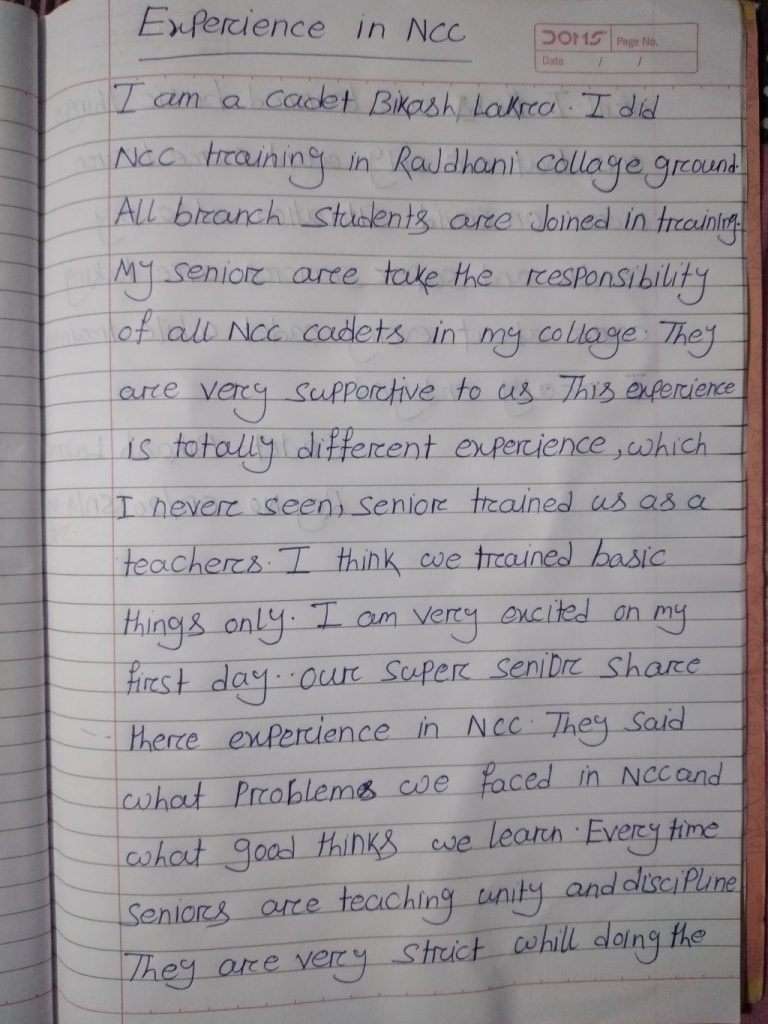 Experience in NCC
DOMS
Page No.
Date / /
I am a cadet Bikash Lakra. I did
NCC training in RaJdhani collage ground.
All branch students are Joined in training.
My senior are take the responsibility
of all NCC cadets in my collage. They
are very supportive to us. This experience
is totally different experience, which
I never seen, senior trained us as a
teachers. I think we trained basic
things only. I am very excited on my
first day.. our super senior share
there experience in NCC. They said
what problems we faced in NCC and
what good thinks we learn. Every time
seniors are teaching unity and discipline
They are very strict whill doing the